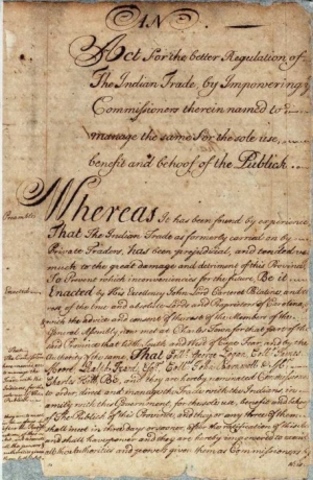 AN
Act For the better Regulation of
The Indian Trade, by Impowering
Commissioners therein named to
manage the same For the sole use,
benefit and behoof of the Publick
Preamble
Whereas It has been found by experience
That The Indian Trade as formerly carried on by
Private Traders, has been prejudicial, and tended
much to the great damage and detriment of this Province
To Prevent which inconveniencies for the future Be it
Enacted by His Excellency John Lord Carteret Palatine and the
rest of the true and absolute Lords and Proprietors of Carolina,
with the advice and consent of the rest of the Members of the
General Assembly, now met at Charles Town for that part of the
said Province that lyeth South and West of Cape Fear, and by the
Authority of the same, That Coll. George Logan, Coll. James
Charles Hill be, and they are hereby nominated
to order, direct and manage the Trade with the Indians in
amity with this Government, for the sole use, benefit and
of The Publick of this Province, and they or any three of them
shall meet in three days or sooner, after the ratification of this Act
and shall have power and they are hereby impowered to
all the authorities and powers given them as Commissioners by